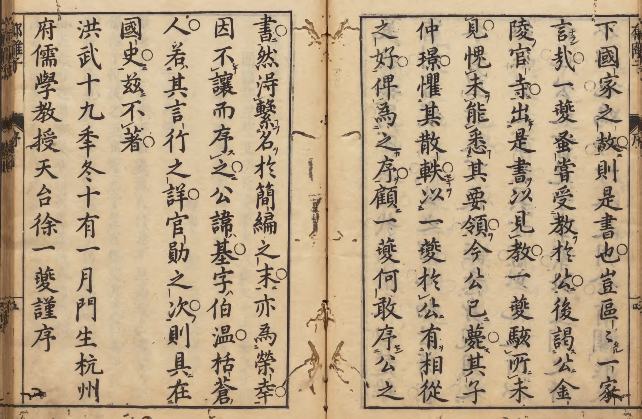 下國家之故則是書也豈區〻一家
言哉一夔蚤嘗受教於公後謁公金
陵官寺出是書以見教一夔駭所未
見愧未能悉其要領今公已薨其子
仲璟懼其散軼以一夔於公有相從
之好俾為之序顧一夔何敢序公之
書然淂繫名於簡編之末亦為榮幸
因不讓而序之公諱基字伯温栝蒼
人若其言行之詳官勛之次則具在
國史茲不著
洪武十九季冬十有一月門生杭州
府儒學教授天台徐一夔謹序